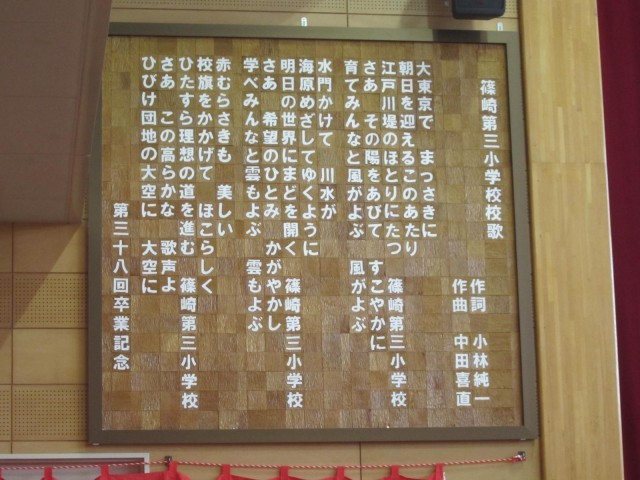 篠崎第三小学校校歌
作詞　小林純一
作曲　中田喜直
大東京で　まっさきに
朝日を迎えるこのあたり
江戸川堤のほとりにたつ　篠崎第三小学校
さあ　その陽をあびて　すこやかに
育てみんなと風がよぶ　風がよぶ
水門かけて　川水が
海原めざしてゆくように
明日の世界にまどを開く　篠崎第三小学校
さあ　希望のひとみ　かがやかし
学べみんなと雲もよぶ　雲もよぶ
赤むらさきも　美しい
校旗をかかげて　ほこらしく
ひたすら理想の道を進む　篠崎第三小学校
さあ　この高らかな　歌声よ
ひびけ団地の大空に　大空に
第三十八回卒業記念